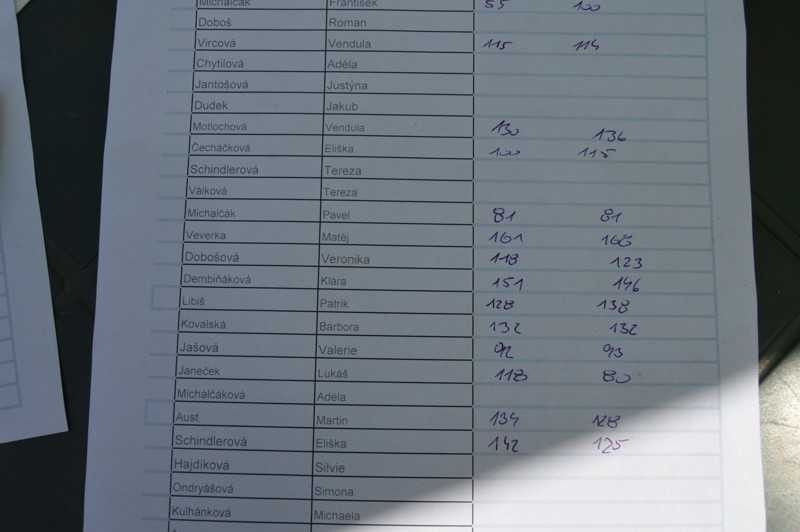 Michalčák František 55 100
Doboš Roman
Vircová Vendula 115 114
Chytilová Adéla
Jantošová Justýna
Dudek Jakub
Motlochová Vendula 130 136
Čecháčková Eliška 100 115
Schindlerová Tereza
Válková Tereza
Michalčák Pavel 81 81
Veverka Matěj 161 168
Dobošová Veronika 118 123
Dembiňáková Klára 151 146
Libiš Patrik 128 138
Kovalská Barbora 132 132
Jašová Valerie 92 93
Janeček Lukáš 118 80
Michálčáková Adéla
Aust Martin 134 128
Schindlerová Eliška 142 125
Hajdíková Silvie
Ondryášová Simona
Kulhánková Michaela